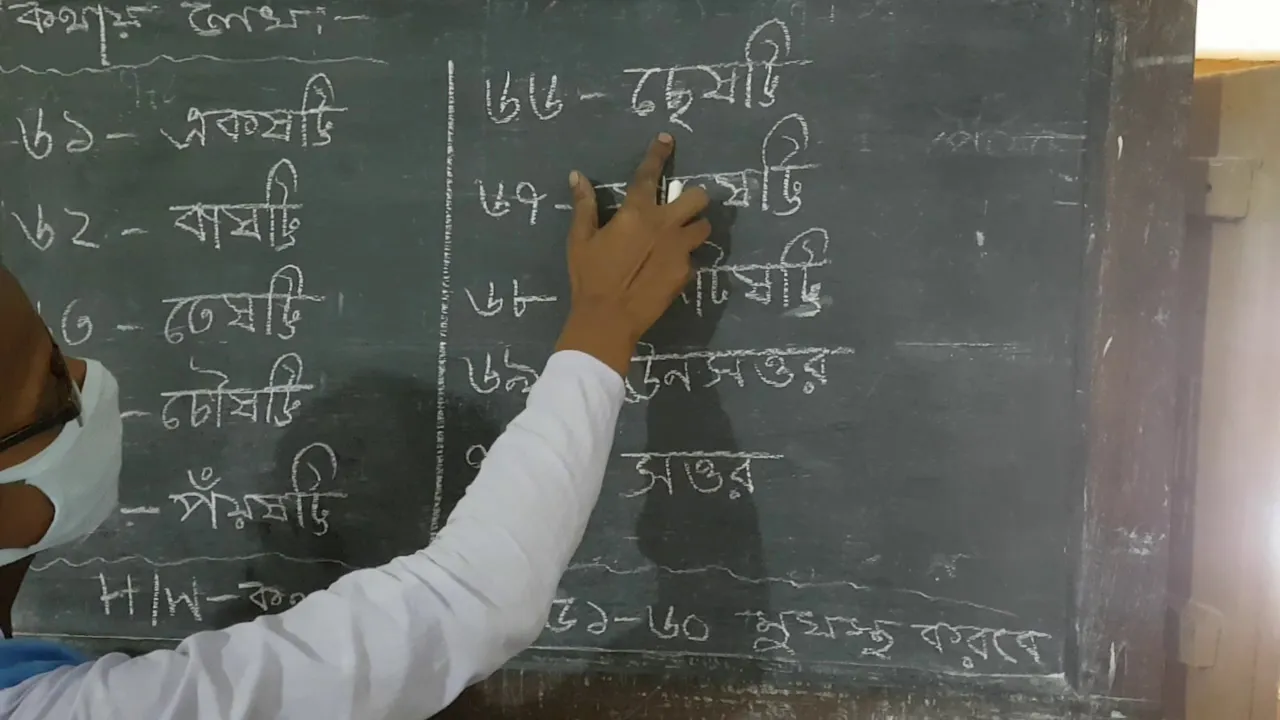 কথায় লেখ:-
৬১ - একষট্টি
৬২ - বাষট্টি
৩ - তেষট্টি
- চৌষট্টি
- পঁয়ষট্টি
৬৬ - ছেষট্টি
৬৭ -
৬৮ -
৬৯ উনসত্তর
৭ সত্তর
H/W -
৫১-৬০ মুখস্থ করবে